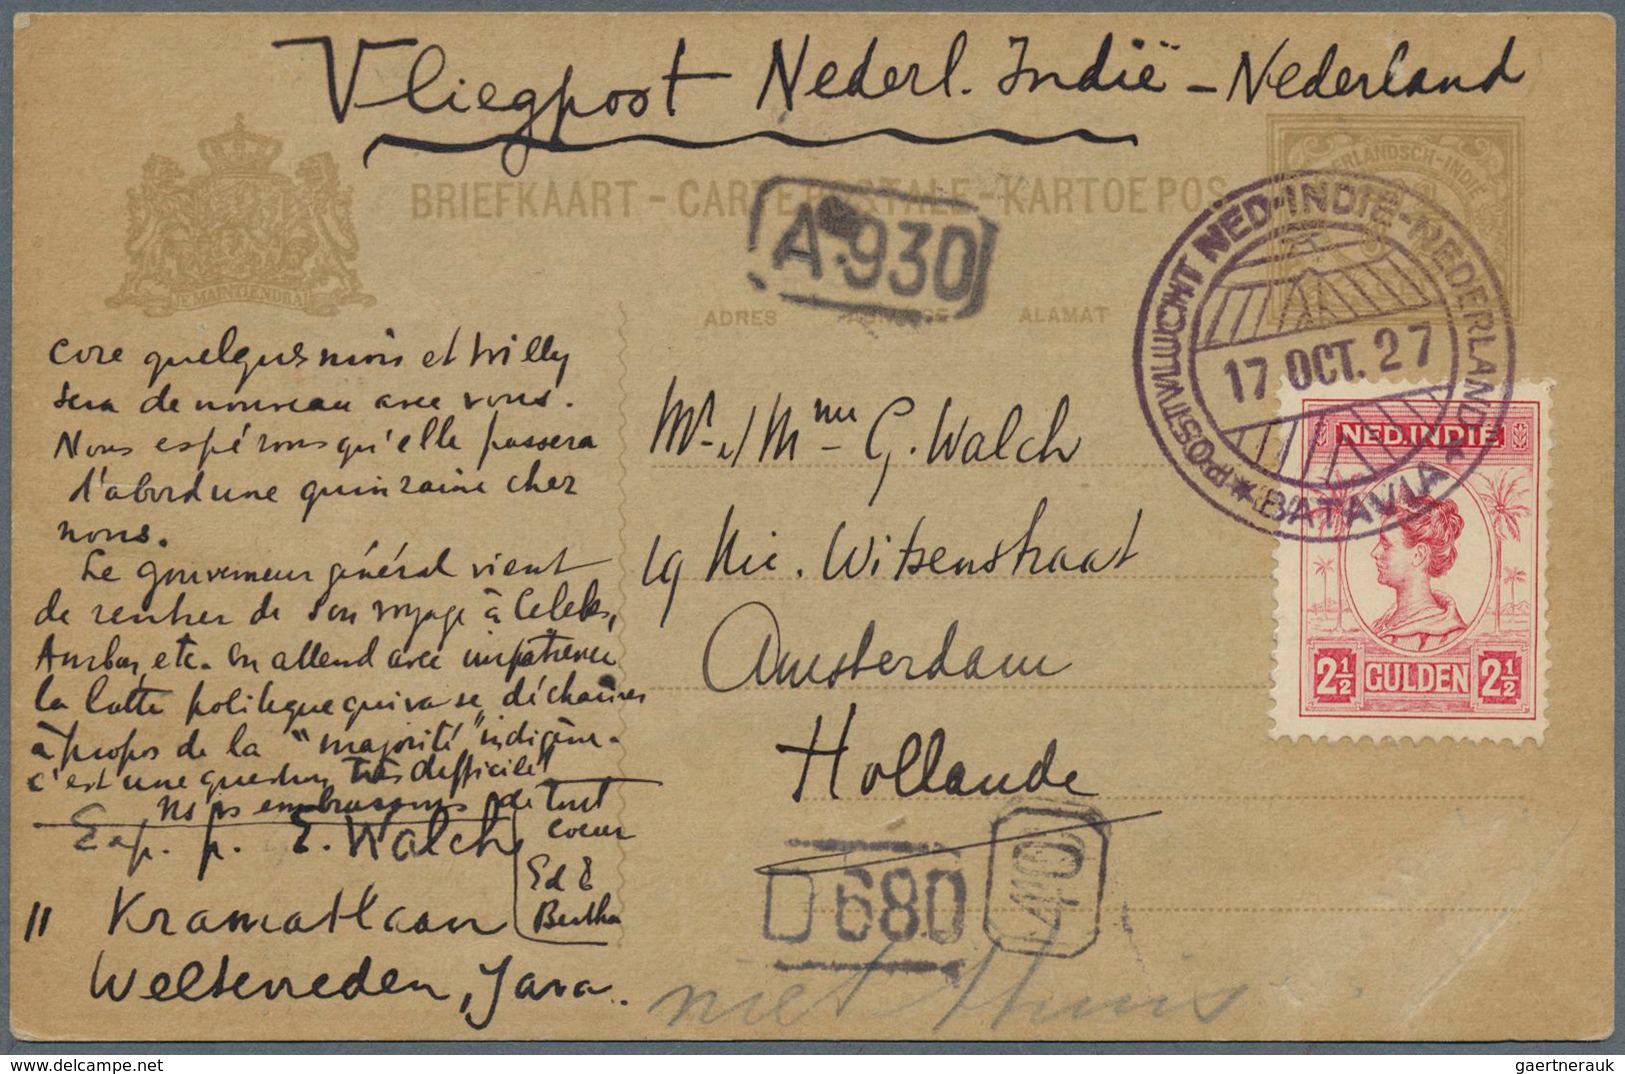 Vliegpost Nederl. Indië - Nederland
BRIEFKAART - CARTE POSTALE - KARTOE POS
JE MAINTIENDRAI
A.930
ADRES ALAMAT
POSTVLUCHT NED-INDIË-NEDERLAND
17 OCT. 27
BATAVIA
NED. INDIË
2½ GULDEN 2½
core quelques mois et Willy
sera de nouveau avec vous.
Nous espérons qu'elle passera
d'abord une quinzaine chez
nous.
Le gouverneur général vient
de rentrer de son voyage à Celebes,
Ambon, etc. On attend avec impatience
la lutte politique qui va se déchainer
à propos de la "majorité" indigène.
c'est une question très difficile!
Ns vs embrassons de tout
coeur
Ed &
Bertha
Exp. p. E. Walch
11 Kramatlaan
Weltevreden, Java.
Mr. et Mme G. Walch
19 Nic. Witsenstraat
Amsterdam
Hollande
D 680
40
niet thuis
gaertnerauk